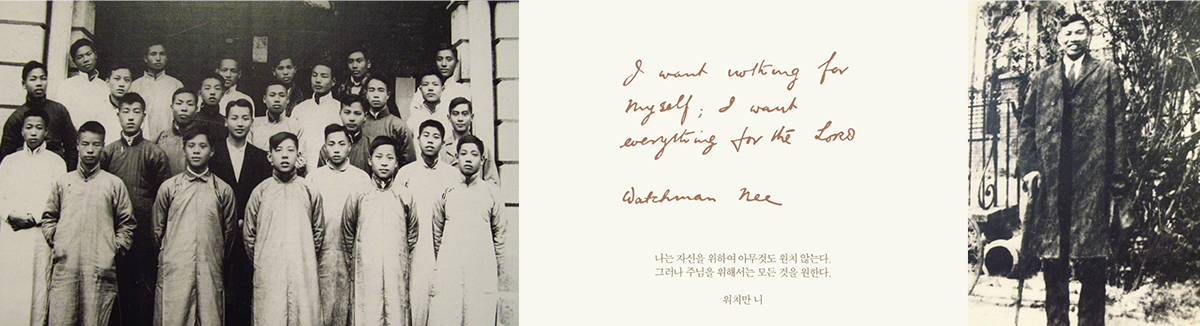 I want nothing for
myself; I want
everything for the LORD
Watchman Nee
나는 자신을 위하여 아무것도 원치 않는다.
그러나 주님을 위해서는 모든 것을 원한다.
워치만 니